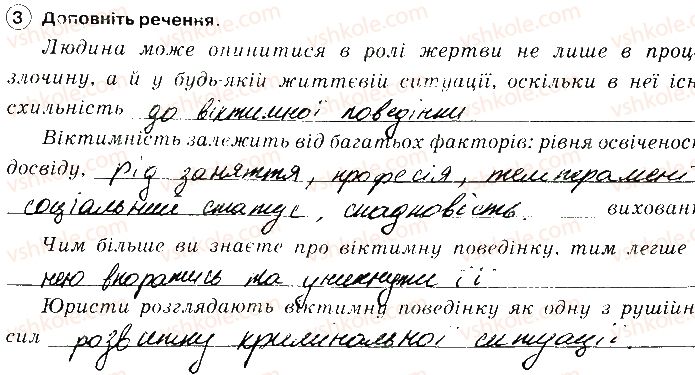 3 Доповніть речення.
Людина може опинитися в ролі жертви не лише в проц
злочину, а й у будь-якій життєвій ситуації, оскільки в неї існ
схильність до віктимної поведінки
Віктимність залежить від багатьох факторів: рівня освіченос
досвіду, рід заняття, професія, темперамент
соціальний статус, спадковість. виховані
Чим більше ви знаєте про віктимну поведінку, тим легше
нею впоратись та уникнути її
Юристи розглядають віктимну поведінку як одну з рушійн
сил розвитку кримінальної ситуації.
vshkole.com